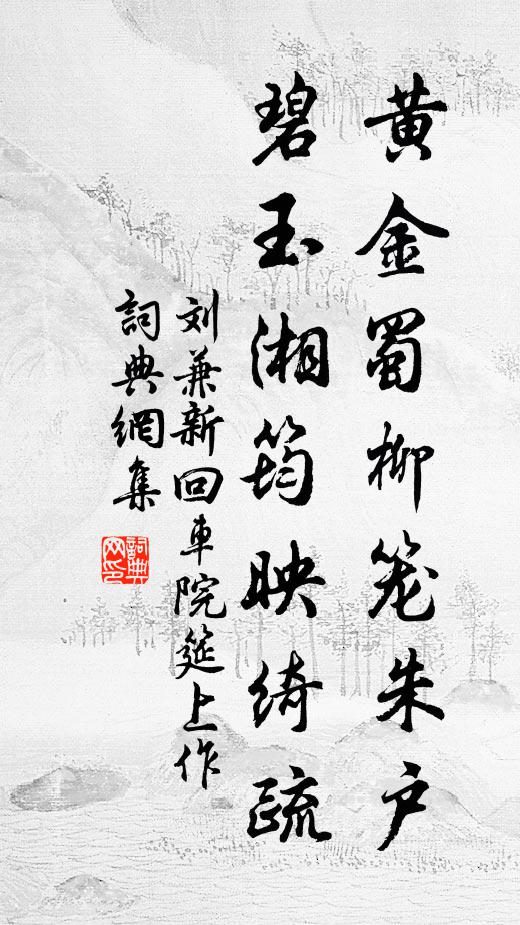 黄金蜀柳笼朱户
碧玉湘筠映绮疏
刘兼新回車院筵上作
詞典網集
詞典
网印